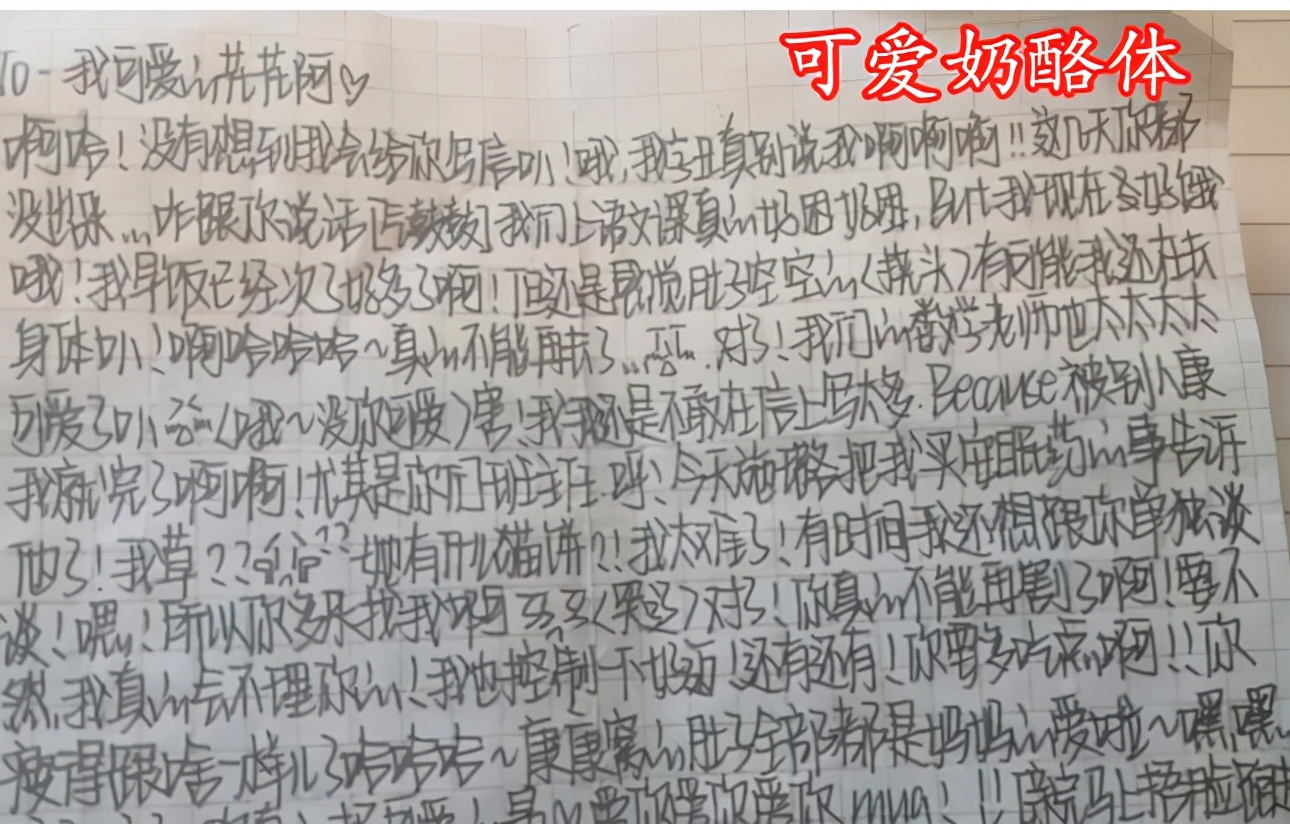 可爱奶酪体
To-我可爱in花花阿♡
啊哈！没有想到我会给你写信叭！哦，我字丑真别说我啊啊啊!!这几天你都
没出来...咋跟你说话[气鼓鼓]我们上语文课真in好困好困，But我现在又好饿
哦！我早饭已经次了好多了啊！但还是感觉肚子空空in(挠头)有可能我还在长
身体叭！啊哈哈哈~真in不能再长了...对了！我们in数学老师也太太太太
可爱了叭(哦~没你可爱)害！我还是不敢在信上写太多.Because被别人康
我就完了啊啊！尤其是你们班主任 今天 把我买安眠药in事告诉
他了！我草??她有什么猫饼?!我太难了！有时间我还想跟你单独谈
谈！嗯！所以你多来找我啊 (哭泣)对了！你真in不能再割了啊！要不
然，我真in会不理你in！我也控制一下 ！还有还有！你要多吃点啊!!你
瘦得跟啥一样儿了哈哈哈~康康窝in肚子全部都是妈妈in爱啦~嘿嘿
爱你爱你爱你 mua！!!